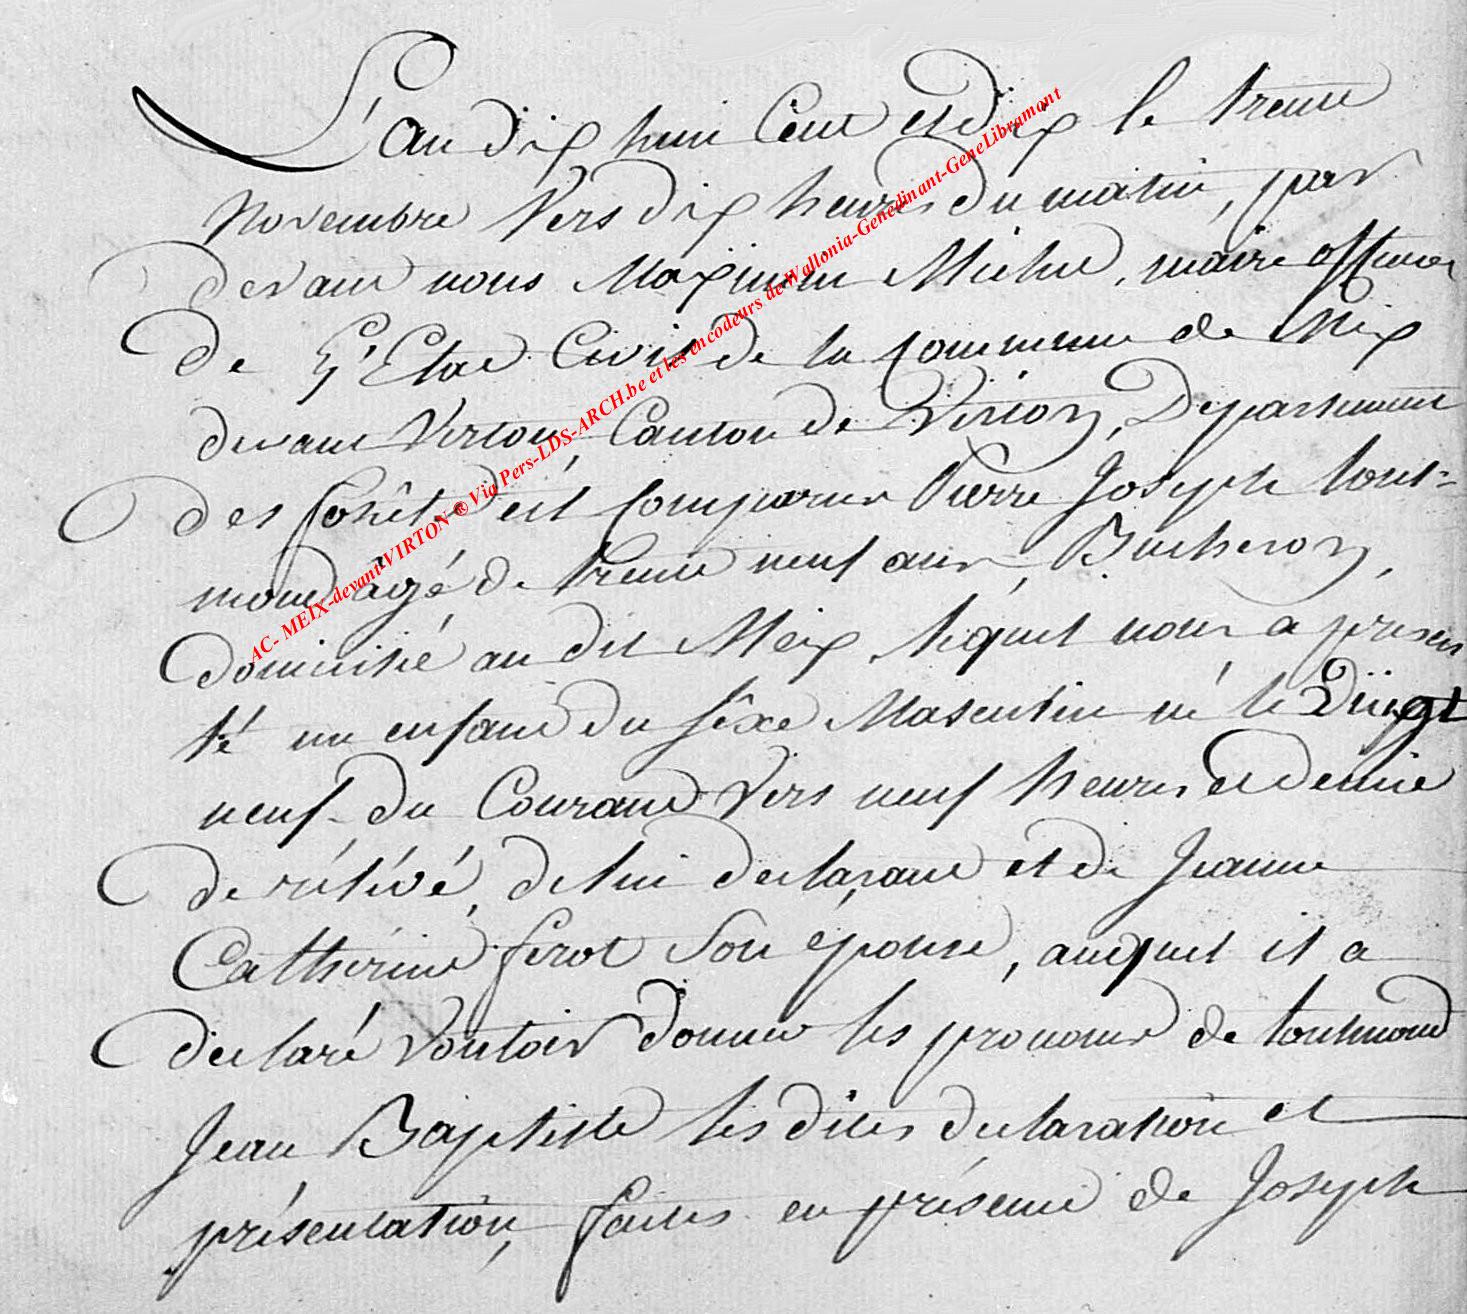 L'an dix huit Cent et dix le trente
Novembre Vers dix heures du matin, par
devant nous Maximin Michel, maire officier
de L'Etat Civil de la Commune de Meix
devant Virton, Canton de Virton, Departement
des forêts est comparu Pierre Joseph tout-
mond âgé de trente neuf ans, Bucheron,
domicilié au dit Meix lequel nous a présen
té un enfant du séxe Masculin né le vingt
neuf du Courant Vers neuf heures et demie
de rélévé, de lui declarant et de Jeanne
Catherine ferot Son épouse, auquel il a
declaré Vouloir donner les prenoms de toutmond
Jean Baptiste les dites declaration et
présentation, faites en présence de Joseph
AC- MEIX-devant-VIRTON ® Via Pers-LDS-ARCH.be et les encodeurs de Wallonia-Genedinant-GeneLibramont